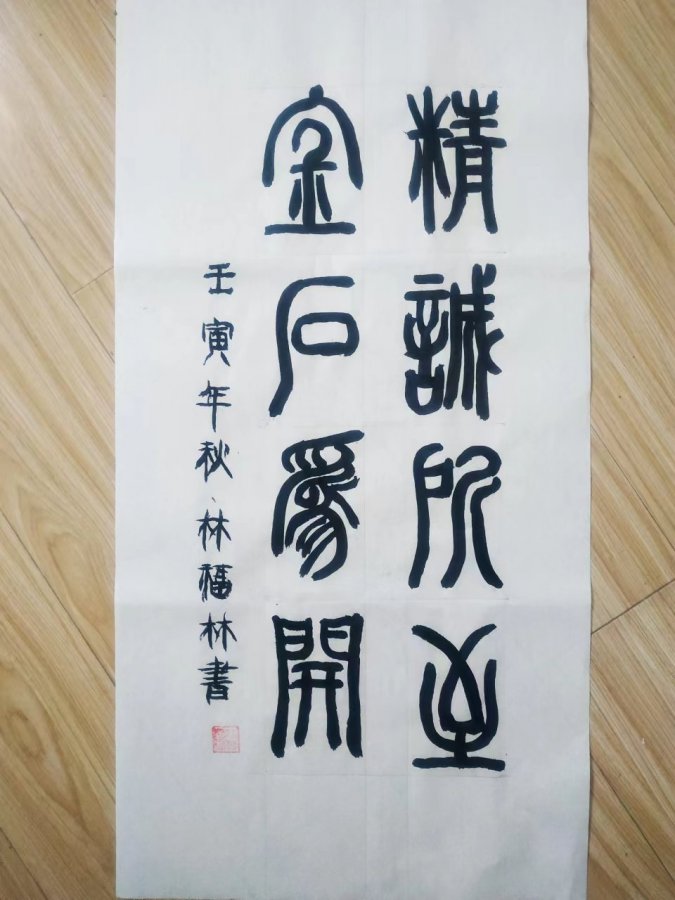 精誠所至
金石為開
壬寅年秋、林福林書